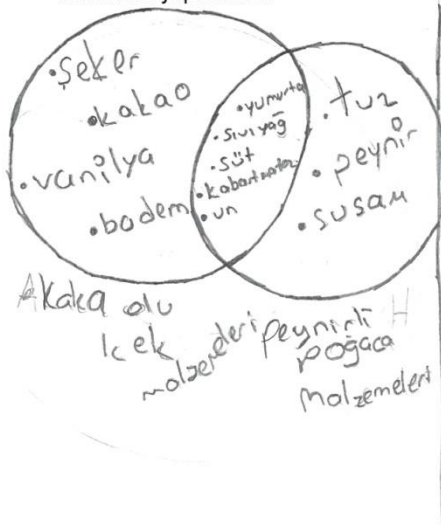 •şeker
•kakao
•vanilya
•badem
•yumurta
•sıvıyağ
•süt
•kabartmatoz
•un
•tuz
•peynir
•susam
A
Kaka olu
kek
malzemeleri
H
peynirli
poğaca
malzemeleri